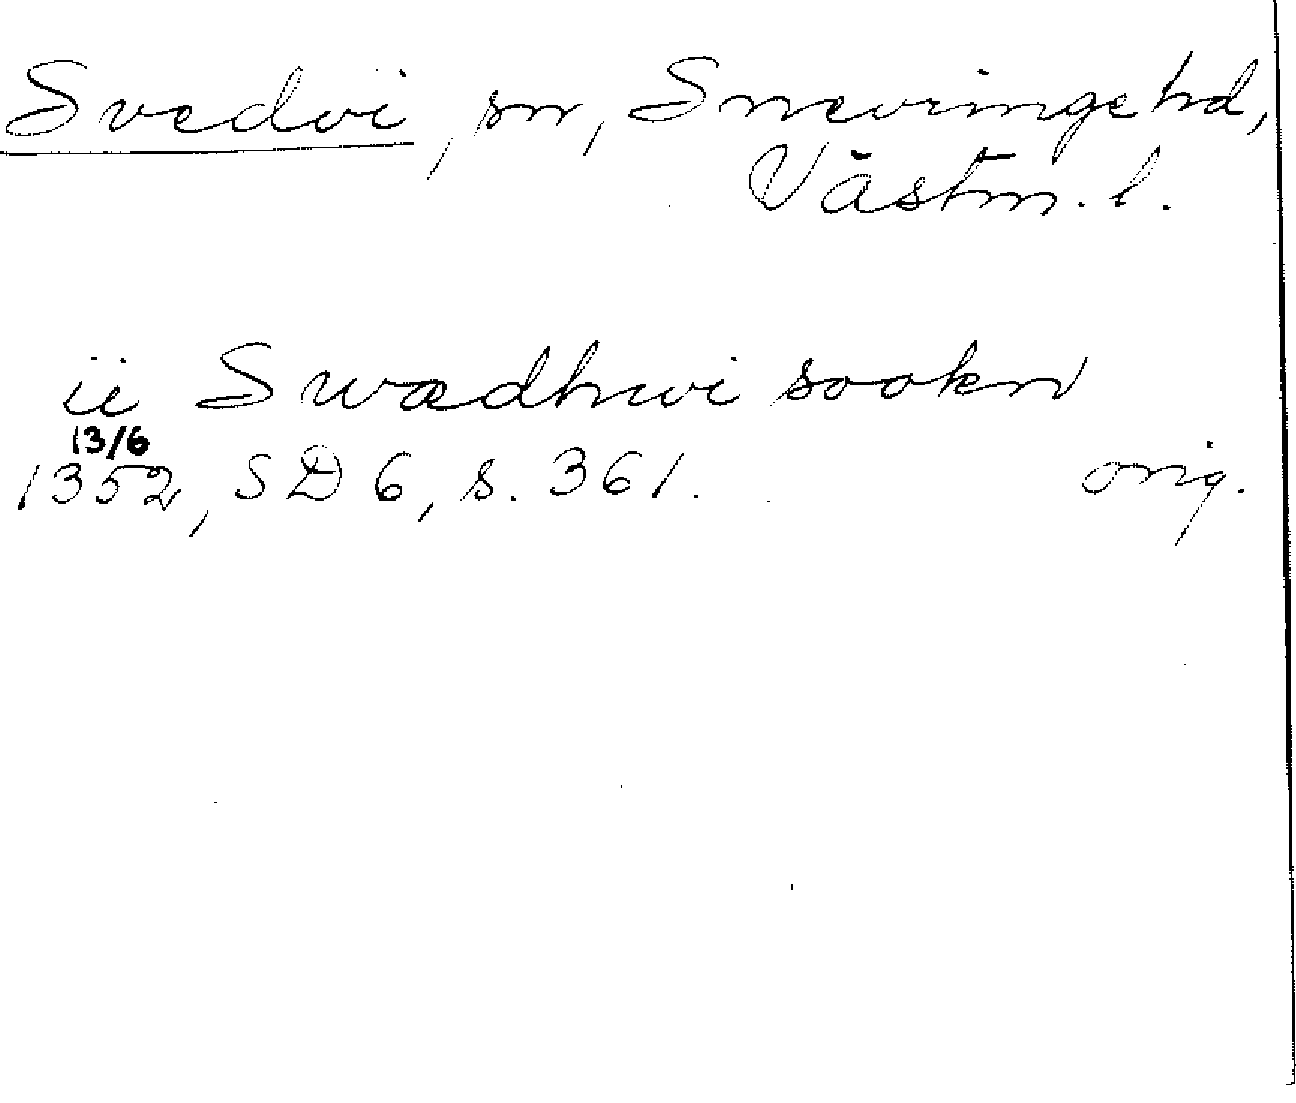 Svedvi, sn, Snevringe hd,
Västm. l.
ii Swædhwi sookn
13/6
1352, SD 6, s. 361. orig.